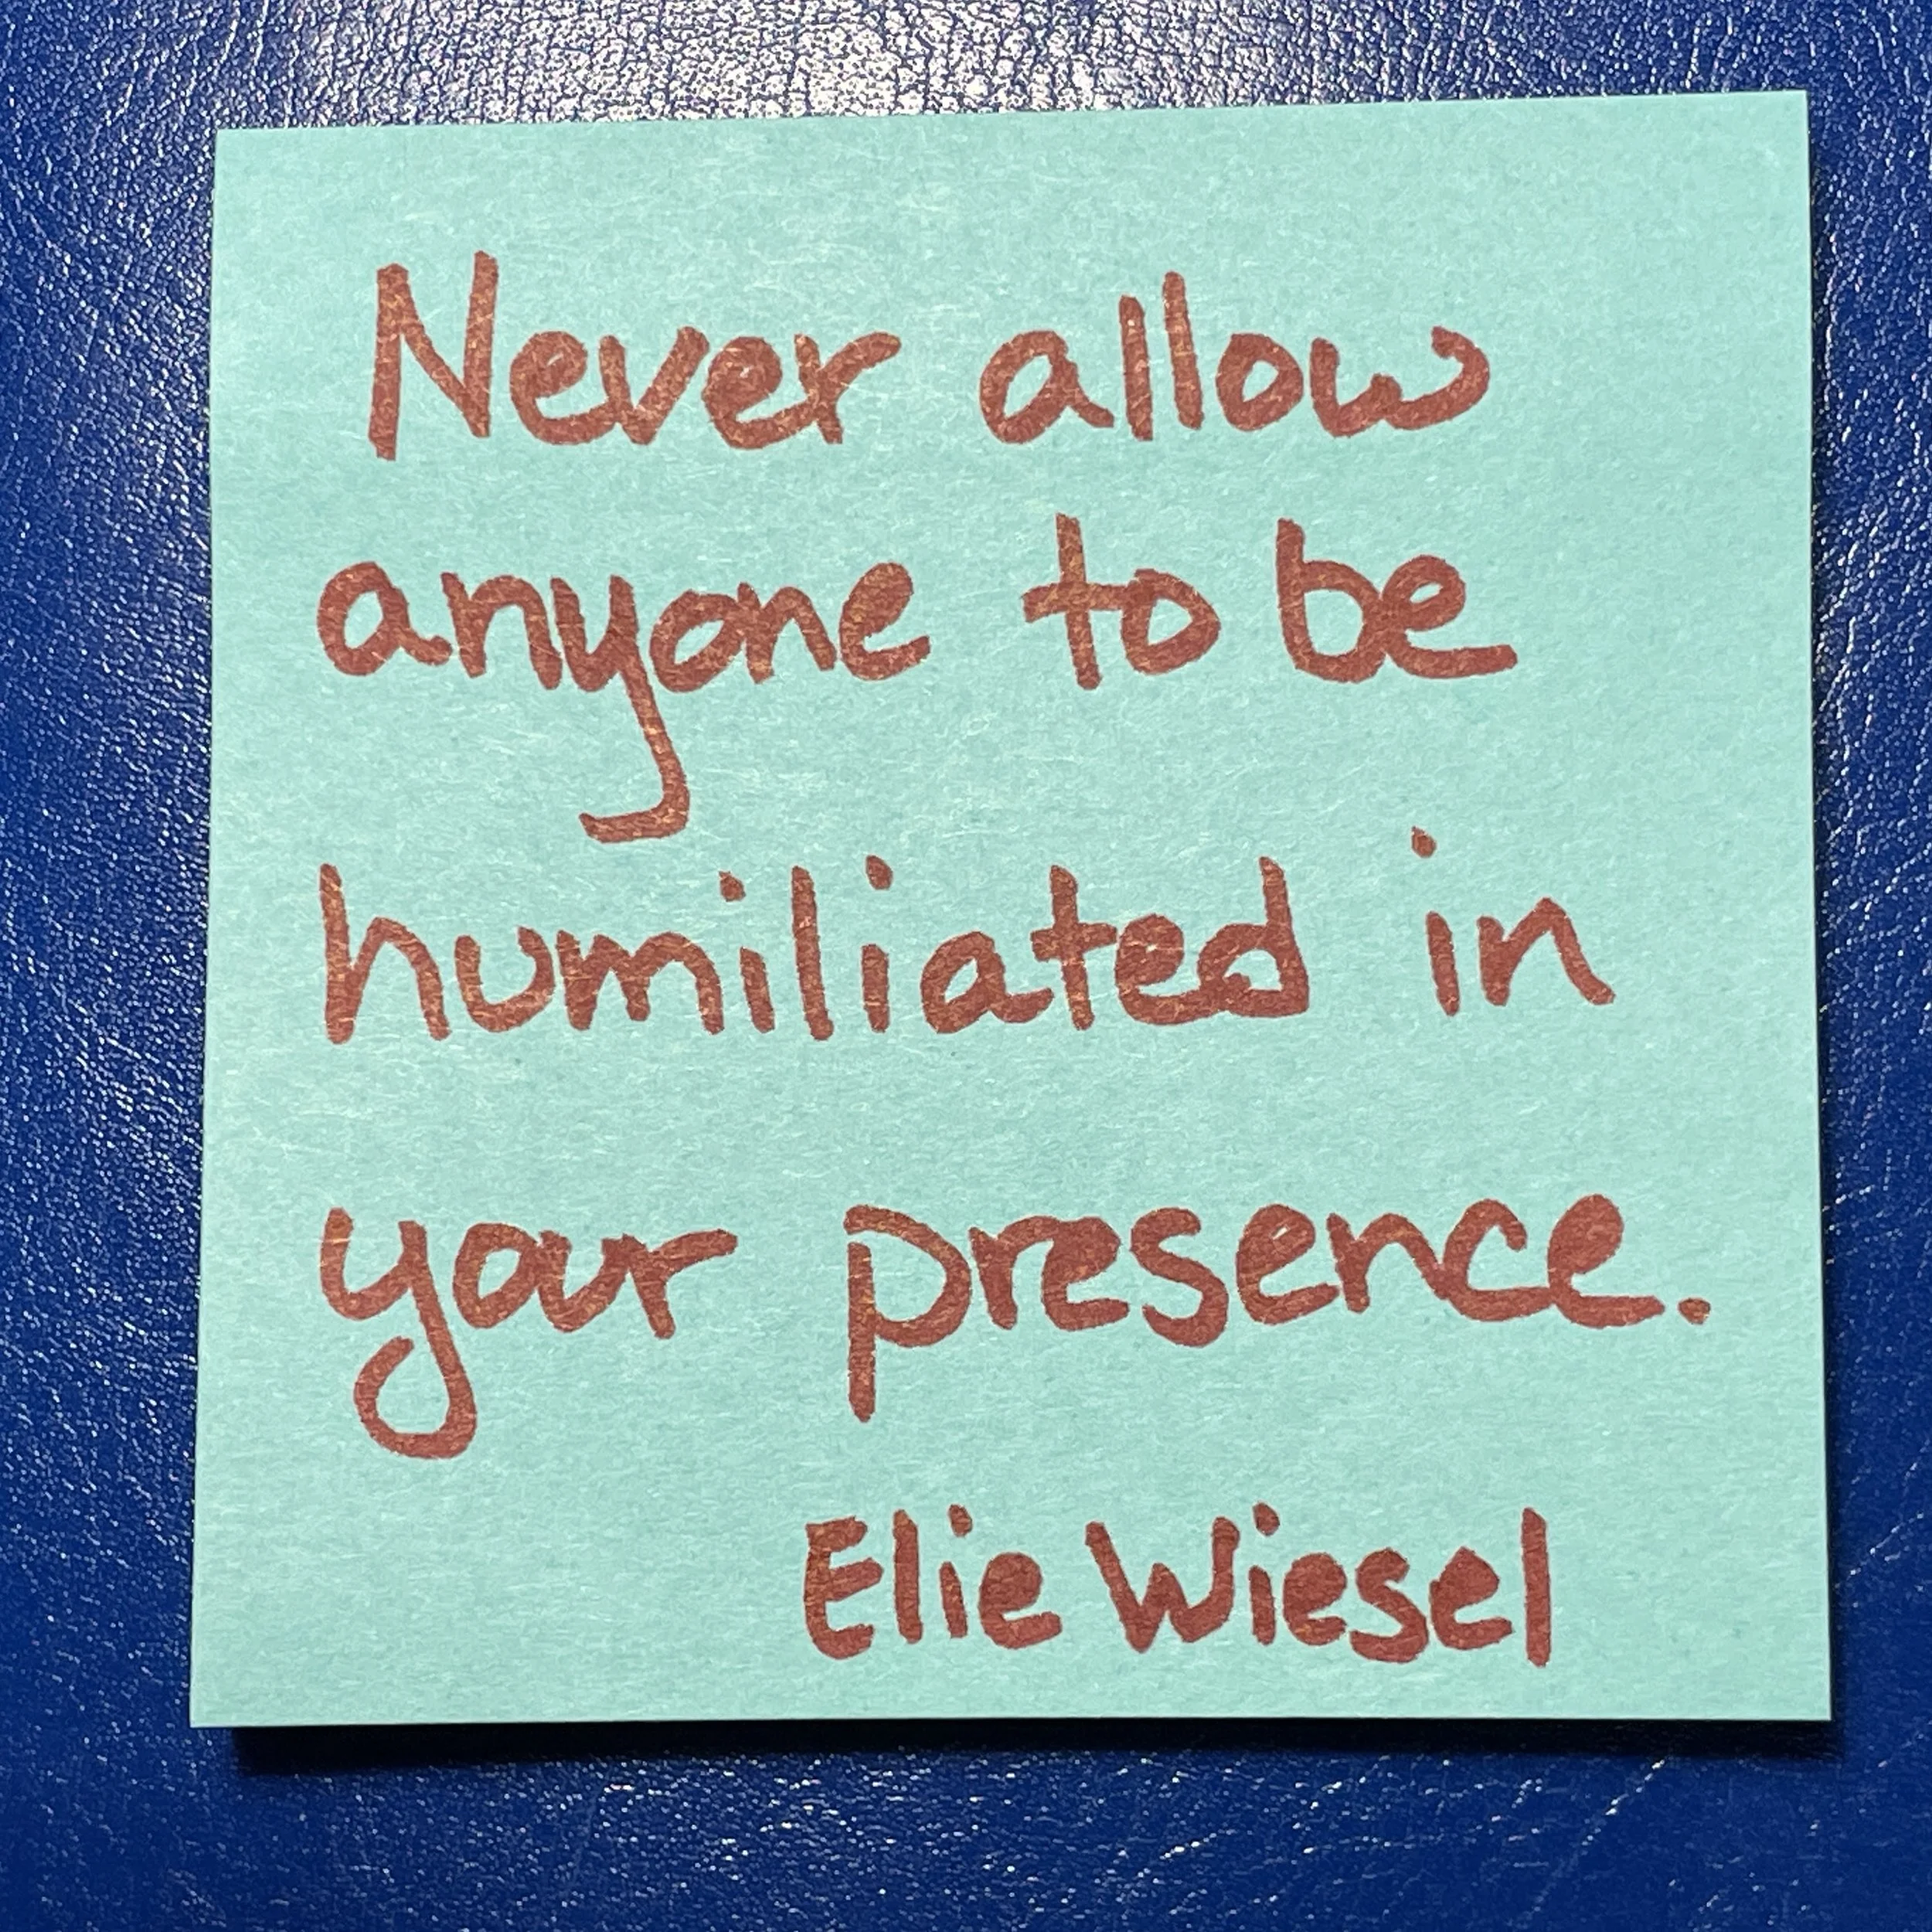 Never allow
anyone to be
humiliated in
your presence.
Elie Wiesel